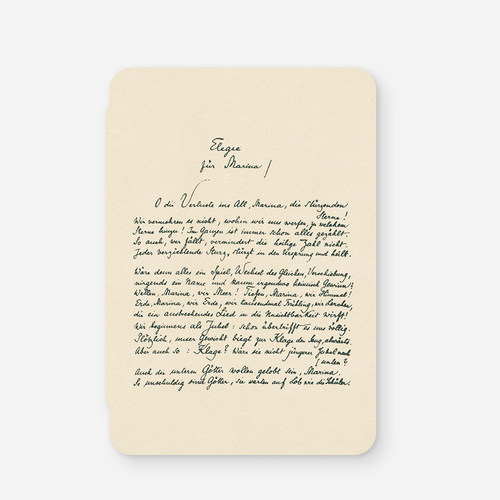 Elegie
für Marina /
O die Verluste ins All, Marina, die stürzenden
Sterne!
Wir vermehren es nicht, wohin wir uns werfen, zu welchem
Sterne hinzu! Im Ganzen ist immer schon alles gezählt.
So auch, wer fällt, vermindert die heilige Zahl nicht.
Jeder verzichtende Sturz, stürzt in den Ursprung und heilt.
Wäre denn alles ein Spiel, Wechsel des Gleichen, Verschiebung,
nirgends ein Name und kaum irgendwo heimisch Gewinn?
Wellen, Marina, wir Meer! Tiefen, Marina, wir Himmel!
Erde, Marina, wir Erde, wir tausendmal Frühling, wie Lerchen,
die ein ausbrechendes Lied in die Unsichtbarkeit wirft!
Wir beginnens als Jubel: schon übertrifft es uns völlig.
Plötzlich, unser Gewicht biegt zur Klage den Sang abwärts.
Aber auch so: Klage? Wäre sie nicht jüngerer Jubel nach
(unten?
Auch die unteren Götter wollen gelobt sein, Marina.
So unschuldig sind Götter, sie warten auf Lob wie die Schüler.